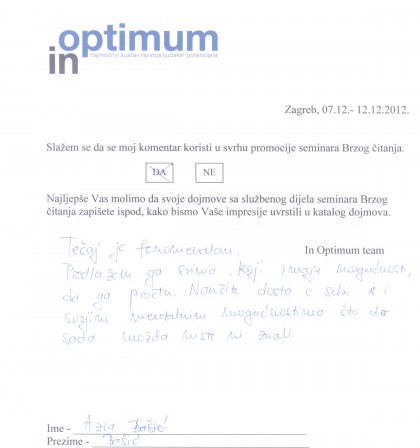 in optimum
najmoćniji sustav razvoja ljudskih potencijala
Zagreb, 07.12.- 12.12.2012.
Slažem se da se moj komentar koristi u svrhu promocije seminara Brzog čitanja.
DA NE
Najljepše Vas molimo da svoje dojmove sa službenog dijela seminara Brzog
čitanja zapišete ispod, kako bismo Vaše impresije uvrstili u katalog dojmova.
In Optimum team
Tečaj je fenomenalan.
Predlažem ga svima koji imaju mogućnosti,
da ga prođu. Naučite dosta o sebi i
svojim mentalnim mogućnostima što do
sada možda niste ni znali.
Ime - Azra
Prezime -